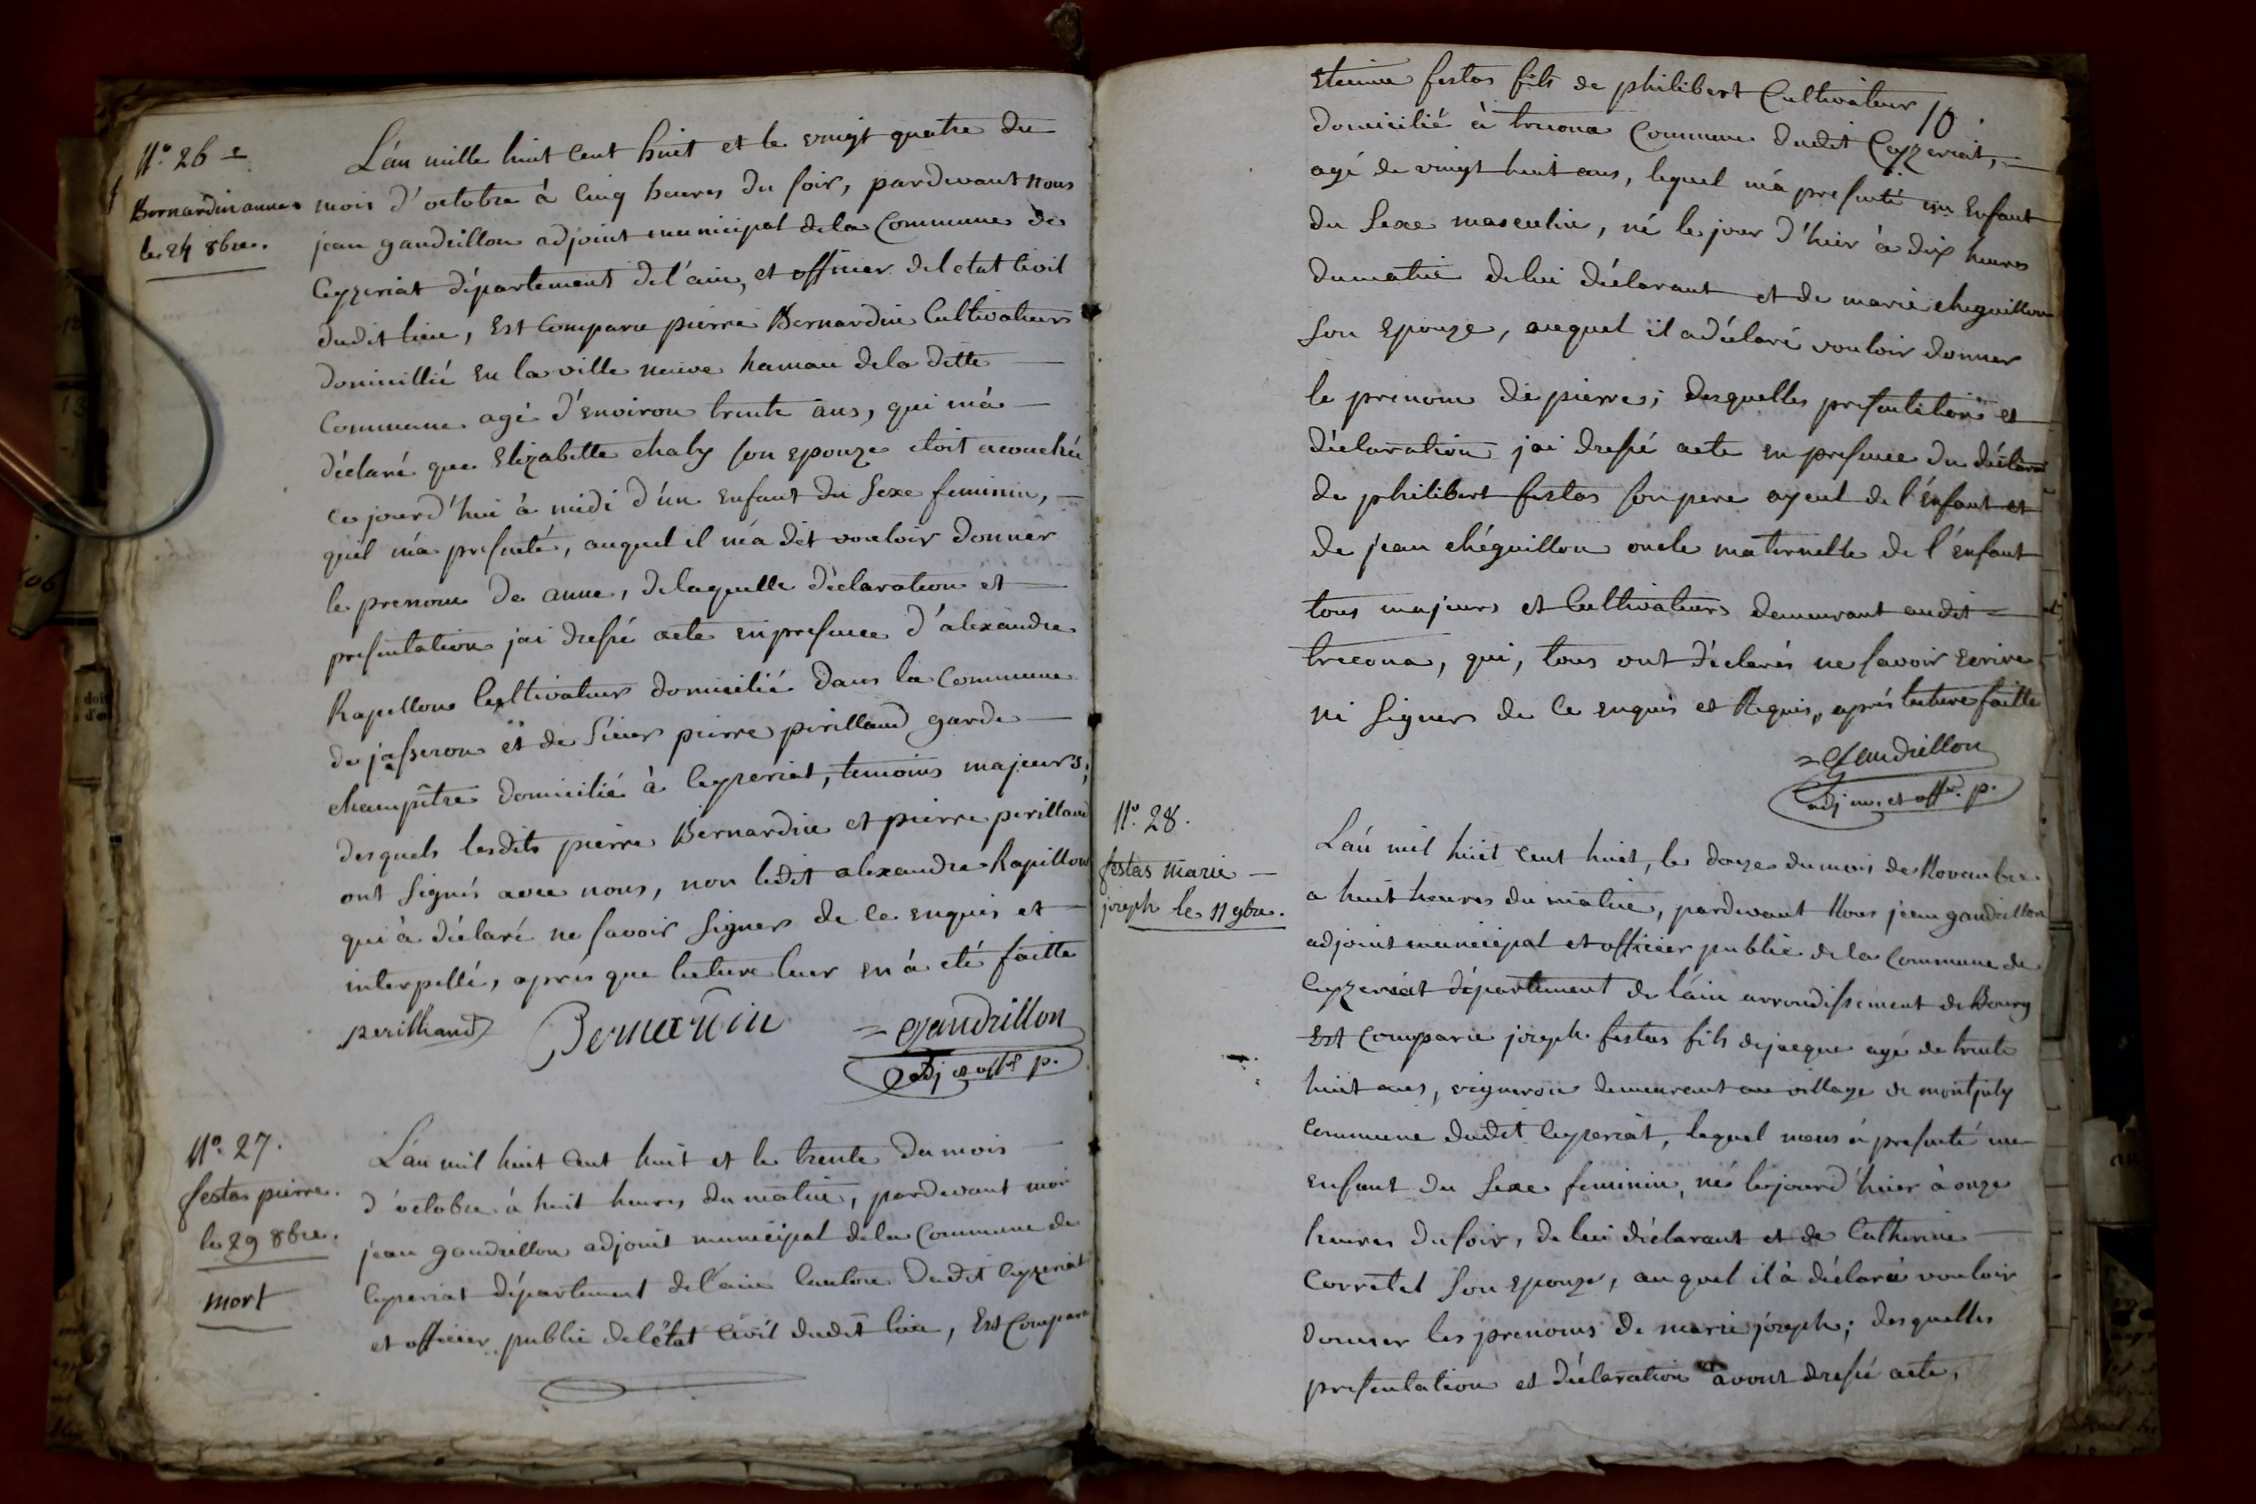 N.º 26 e
Bernardin anne
le 24 8bre.
L'an mille huit Cent huit et le vingt quatre du
mois d'octobre à Cinq heures du soir, pardevant nous
jean gaudrillon adjoint municipal dela Commune de
Ceyzeriat département del'ain, et officier del'etat Civil
dudit lieu, Est Comparu pierre Bernardin Cultivateur
domicillié en la ville neuve hamau dela ditte
Commune agé d'environ trente ans, qui m'a
déclaré que Elizabette chaby son epouze etoit acouchée
ce jourd'hui à midi d'un enfant du sexe feminin,
quil m'a presenté, auquel il m'a dit vouloir donner
le prenom de anne, delaquelle déclaration et
presentation jai dressé acte en presence d'alexandre
Rapillon Cultivateur domicilié dans la Commune
de jasseron et de Sieur pierre perilland garde
champêtre domicilié à Ceyzeriat, temoins majeurs,
desquels lesdits pierre Bernardin et pierre perilland
ont Signés avec nous, non ledit alexandre Rapillon
qui à déclaré ne savoir signer de ce enquis et
interpellé, aprés que lecture leur en à eté faitte
perilliand Bernardin = Gaudrillon
adj et offr p.
N.º 27.
festas pierre.
le 29 8bre.
mort
L'an mil huit Cent huit et le trente du mois
d'octobre à huit heures du matin, pardevant moi
jean gaudrillon adjoint municipal dela Commune de
Ceyzeriat département del'ain Canton dudit Ceyzeriat
et officier public del'état Civil dudit lieu, Est Comparu
10
Etienne festas fils de philibert Cultivateur
domicilié à treconа Commune dudit Ceyzeriat,
agé de vingt huit ans, lequel m'a presenté un Enfant
du Sexe masculin, né le jour d'hier à dix heures
du matin de lui déclarant et de marie cheguillon
son Epouze, auquel il a déclaré vouloir donner
le prenom de pierre; desquelles presentation et
déclaration jai dressé acte en presence du déclarant
de philibert festas son pere ayeul de l'énfant et
de jean chéguillon oncle maternelle de l'énfant
tous majeurs et Cultivateurs demeurant audit
trecona, qui, tous ont déclarés ne savoir ecrire
ni signer de ce enquis et Requis, aprés lecture faitte
= Gaudrillon
adj m. et offr. p.
N.º 28.
festas marie
joseph le 11 9bre.
L'an mil huit Cent huit, le douze du mois de Novembre
a huit heures du matin, pardevant Nous jean gaudrillon
adjoint municipal et officier public dela Commune de
Ceyzeriat département de l'ain arrondissement de Bourg
Est Comparu joseph festas fils de jacque agé de trente
huit ans, vigneron demeurant au village de montjuly
Commune dudit Ceyzeriat, lequel nous à presenté un
enfant du sexe feminin, né le jourd'hier à onze
heures du soir, de lui déclarant et de Catherine
Corretel son epouze, auquel il à déclaré vouloir
donner les prenoms de marie joseph; desquelles
presentation et déclaration avont dressé acte,